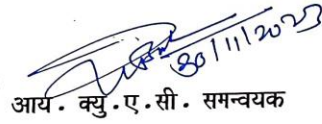 30/11/2023
आय. क्यु.ए.सी. समन्वयक